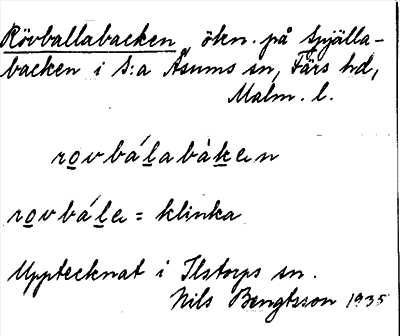 Rövballabacken, ökn. på Spjälla-
backen i S:a Åsums sn, Färs hd,
Malm. l.
rovbálabàken
rovbále = klinka
Upptecknat i Ilstorps sn.
Nils Bengtsson 1935